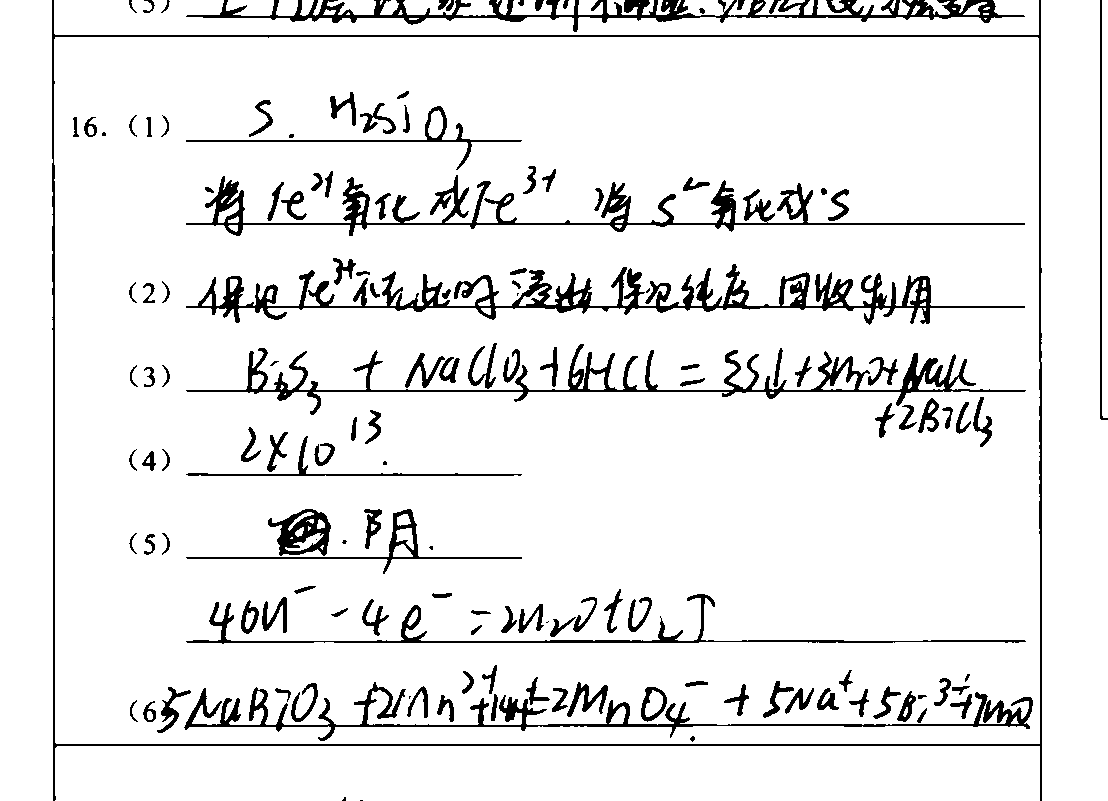 16. (1) S. H₂SiO₃
将Fe²⁺氧化成Fe³⁺. 将S²⁻氧化成S
(2) 保证Fe³⁺不在此时浸出.保证纯度.回收利用
(3) Bi₂S₃ + NaClO₃+6HCl = 3S↓+3H₂O+NaCl
+2BiCl₃
(4) 2×10¹³.
(5) 阴.
4OH⁻ - 4e⁻ = 2H₂O+O₂↑
(6) 5NaBiO₃ +2Mn²⁺+14H⁺=2MnO₄⁻ + 5Na⁺+5Bi³⁺+7H₂O